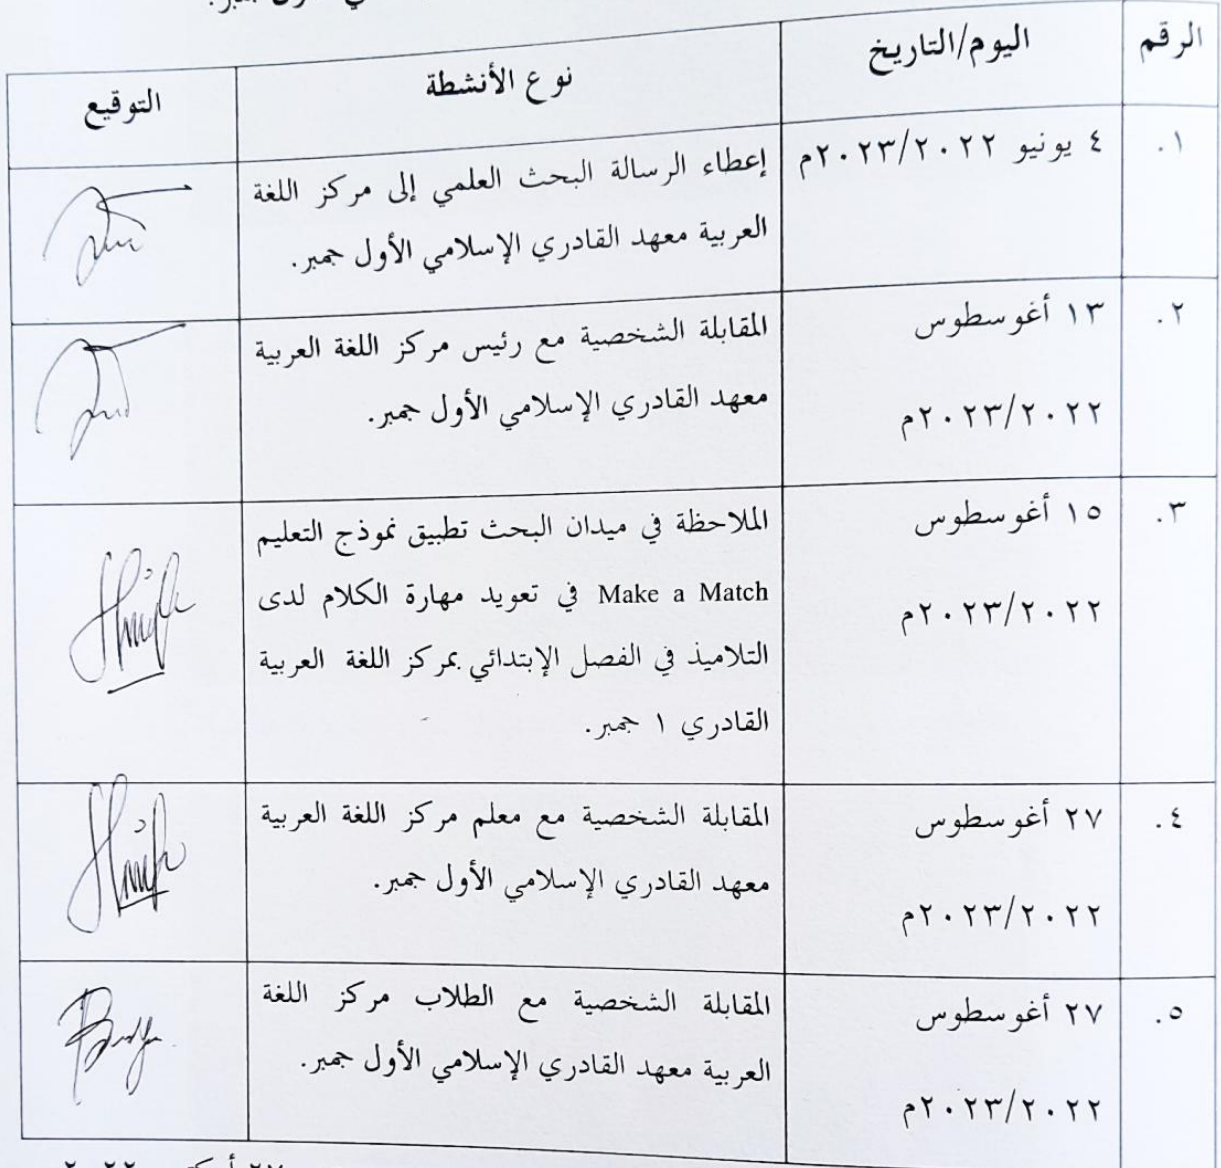 الرقم اليوم/التاريخ نوع الأنشطة التوقيع
١. ٤ يونيو ٢٠٢٣/٢٠٢٢م إعطاء الرسالة البحث العلمي إلى مركز اللغة
العربية معهد القادري الإسلامي الأول جمبر.
٢. ١٣ أغوسطوس المقابلة الشخصية مع رئيس مركز اللغة العربية
٢٠٢٣/٢٠٢٢م معهد القادري الإسلامي الأول جمبر.
٣. ١٥ أغوسطوس الملاحظة في ميدان البحث تطبيق نموذج التعليم
٢٠٢٣/٢٠٢٢م Make a Match في تعويد مهارة الكلام لدى
التلاميذ في الفصل الإبتدائي بمركز اللغة العربية
القادري ١ جمبر.
٤. ٢٧ أغوسطوس المقابلة الشخصية مع معلم مركز اللغة العربية
٢٠٢٣/٢٠٢٢م معهد القادري الإسلامي الأول جمبر.
٥. ٢٧ أغوسطوس المقابلة الشخصية مع الطلاب مركز اللغة
٢٠٢٣/٢٠٢٢م العربية معهد القادري الإسلامي الأول جمبر.